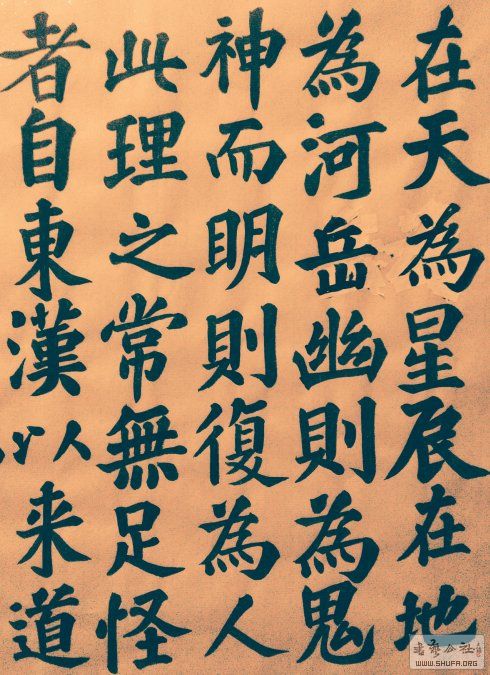 在天為星辰在地
為河岳幽則為鬼
神而明則復為人
此理之常無足怪
者自東漢以来道
書艺公社
WWW.SHUFA.ORG